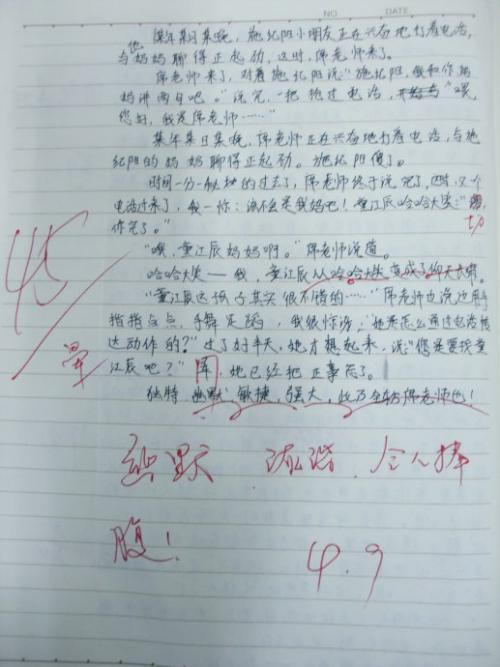 NO. DATE
某年某日某晚,施纪阳小朋友正在兴奋地打着电话,
他与妈妈聊得正起劲,这时,席老师来了。
席老师来了,对着施纪阳说:“施纪阳,我和你妈
妈讲两句吧。”说完,一把抢过电话,“喂,
您好,我是席老师……”
某年某日某晚,席老师正在兴奋地打着电话,与施
纪阳的妈妈聊得正起劲。施纪阳傻了。
时间一分一秒地的过去了,席老师终于说完了,这时,又个
电话过来了,我一惊:该不会是我妈吧!童江辰哈哈大笑:“
你完了。”
“哦,童江辰妈妈啊。”席老师说道。
哈哈大笑——我,童江辰从哈哈大笑变成了仰天大哭。
“童江辰这孩子其实很不错的……”席老师边说边用手
指指点点,手舞足蹈,我很惊讶,“她是怎么通过电话传
达动作的?”过了好半天,她才想起来,说:“您是要找童
江辰吧?”晕,她已经把正事忘了。
独特、幽默、敏捷、强大,此乃全能席老师也!
45
晕
幽默、诙谐、令人捧
腹!
4.9